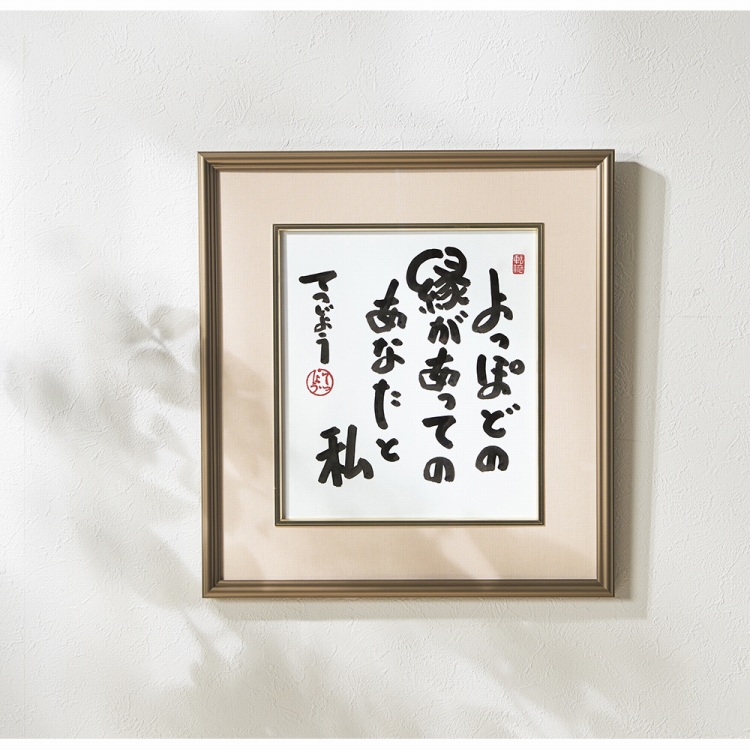 よっぽどの
縁があっての
あなたと
私
てつじょう